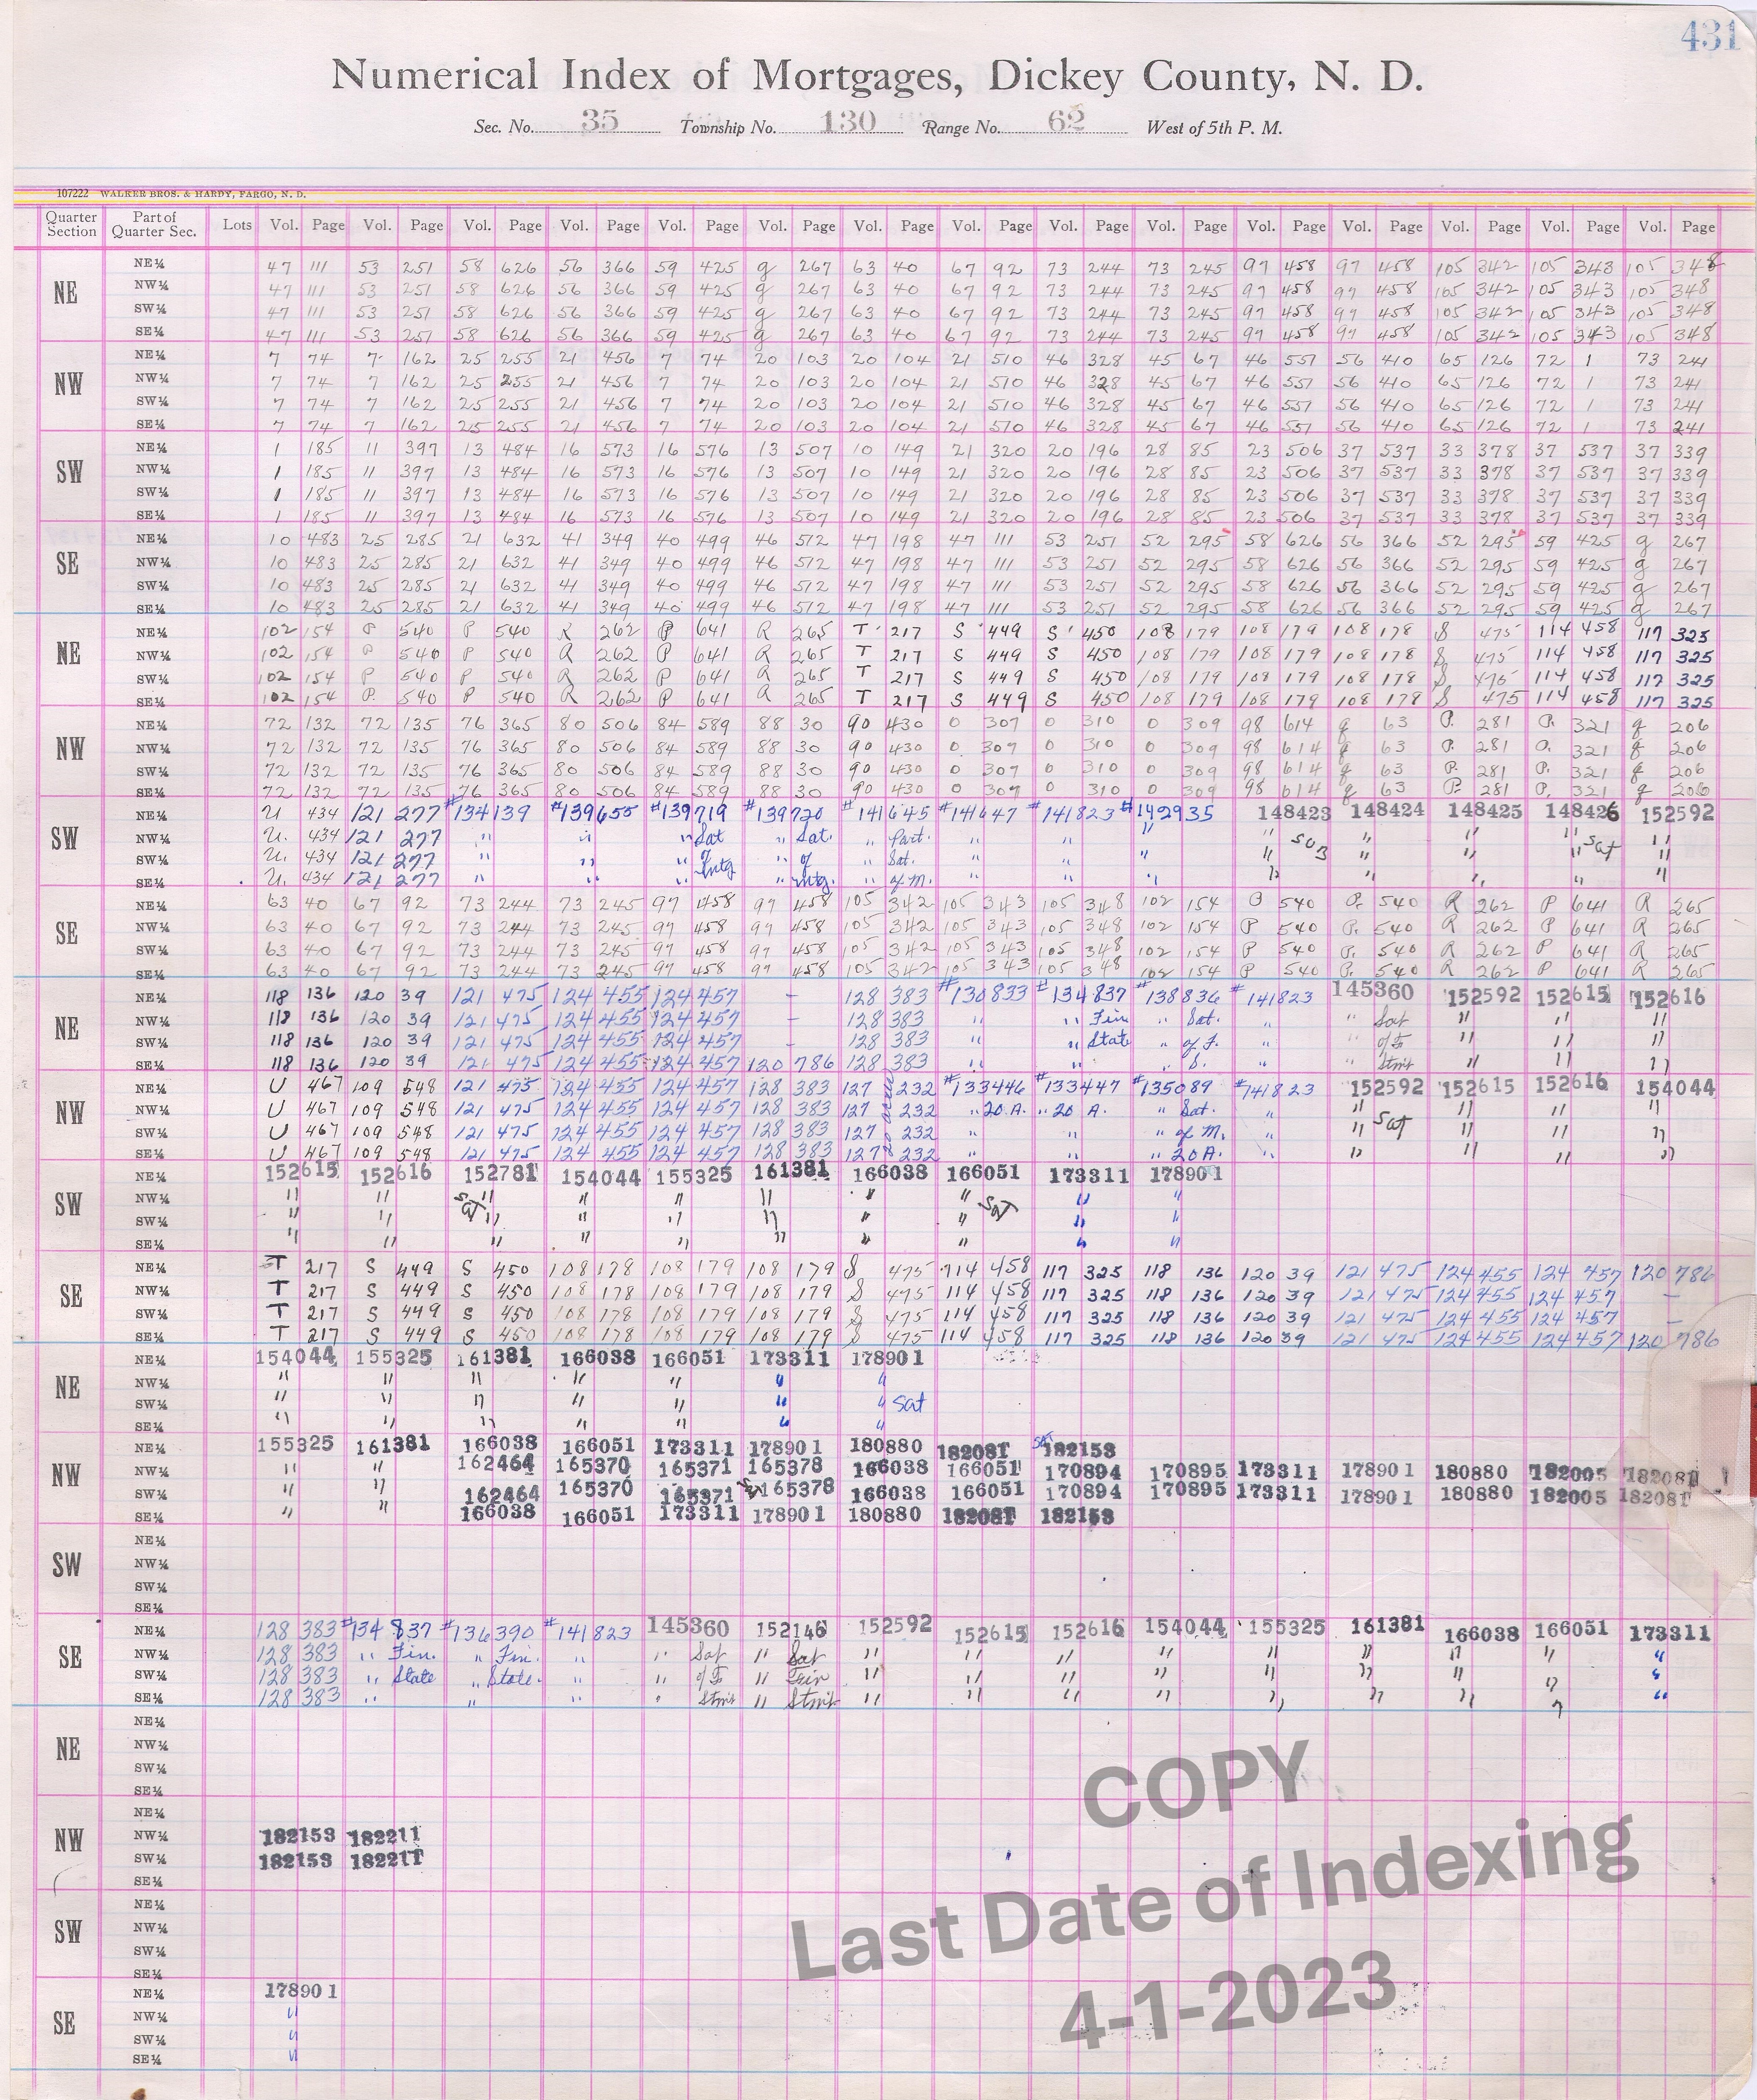 431
Numerical Index of Mortgages, Dickey County, N. D.
Sec. No. 35 Township No. 130 Range No. 62 West of 5th P. M.
107222 WALKER BROS. & HARDY, FARGO, N. D.
Quarter Section Part of Quarter Sec. Lots Vol. Page Vol. Page Vol. Page Vol. Page Vol. Page Vol. Page Vol. Page Vol. Page Vol. Page Vol. Page Vol. Page Vol. Page Vol. Page Vol. Page Vol. Page
NE
NE¼ 47 111 53 251 58 626 56 366 59 425 g 267 63 40 67 92 73 244 73 245 97 458 97 458 105 342 105 343 105 348
NW¼ 47 111 53 251 58 626 56 366 59 425 g 267 63 40 67 92 73 244 73 245 97 458 97 458 105 342 105 343 105 348
SW¼ 47 111 53 251 58 626 56 366 59 425 g 267 63 40 67 92 73 244 73 245 97 458 97 458 105 342 105 343 105 348
SE¼ 47 111 53 251 58 626 56 366 59 425 g 267 63 40 67 92 73 244 73 245 97 458 97 458 105 342 105 343 105 348
NW
NE¼ 7 74 7 162 25 255 21 456 7 74 20 103 20 104 21 510 46 328 45 67 46 551 56 410 65 126 72 1 73 241
NW¼ 7 74 7 162 25 255 21 456 7 74 20 103 20 104 21 510 46 328 45 67 46 551 56 410 65 126 72 1 73 241
SW¼ 7 74 7 162 25 255 21 456 7 74 20 103 20 104 21 510 46 328 45 67 46 551 56 410 65 126 72 1 73 241
SE¼ 7 74 7 162 25 255 21 456 7 74 20 103 20 104 21 510 46 328 45 67 46 551 56 410 65 126 72 1 73 241
SW
NE¼ 1 185 11 397 13 484 16 573 16 576 13 507 10 149 21 320 20 196 28 85 23 506 37 537 33 378 37 537 37 339
NW¼ 1 185 11 397 13 484 16 573 16 576 13 507 10 149 21 320 20 196 28 85 23 506 37 537 33 378 37 537 37 339
SW¼ 1 185 11 397 13 484 16 573 16 576 13 507 10 149 21 320 20 196 28 85 23 506 37 537 33 378 37 537 37 339
SE¼ 1 185 11 397 13 484 16 573 16 576 13 507 10 149 21 320 20 196 28 85 23 506 37 537 33 378 37 537 37 339
SE
NE¼ 10 483 25 285 21 632 41 349 40 499 46 512 47 198 47 111 53 251 52 295 58 626 56 366 52 295 59 425 g 267
NW¼ 10 483 25 285 21 632 41 349 40 499 46 512 47 198 47 111 53 251 52 295 58 626 56 366 52 295 59 425 g 267
SW¼ 10 483 25 285 21 632 41 349 40 499 46 512 47 198 47 111 53 251 52 295 58 626 56 366 52 295 59 425 g 267
SE¼ 10 483 25 285 21 632 41 349 40 499 46 512 47 198 47 111 53 251 52 295 58 626 56 366 52 295 59 425 g 267
NE
NE¼ 102 154 P 540 P 540 R 262 P 641 R 265 T 217 S 449 S 450 108 179 108 179 108 178 S 475 114 458 117 325
NW¼ 102 154 P 540 P 540 R 262 P 641 R 265 T 217 S 449 S 450 108 179 108 179 108 178 S 475 114 458 117 325
SW¼ 102 154 P 540 P 540 R 262 P 641 R 265 T 217 S 449 S 450 108 179 108 179 108 178 S 475 114 458 117 325
SE¼ 102 154 P. 540 P 540 R 262 P 641 R 265 T 217 S 449 S 450 108 179 108 179 108 178 S 475 114 458 117 325
NW
NE¼ 72 132 72 135 76 365 80 506 84 589 88 30 90 430 0 307 0 310 0 309 98 614 g 63 P. 281 P. 321 g 206
NW¼ 72 132 72 135 76 365 80 506 84 589 88 30 90 430 0 307 0 310 0 309 98 614 g 63 P. 281 P. 321 g 206
SW¼ 72 132 72 135 76 365 80 506 84 589 88 30 90 430 0 307 0 310 0 309 98 614 g 63 P. 281 P. 321 g 206
SE¼ 72 132 72 135 76 365 80 506 84 589 88 30 90 430 0 307 0 310 0 309 98 614 g 63 P. 281 P. 321 g 206
SW
NE¼ U 434 121 277 #134139 #139655 #139719 #139720 #141645 #141647 #141823 #142935 148423 148424 148425 148426 152592
NW¼ U. 434 121 277 " " " Sat " Sat. " Part. " " " " " " " Sat "
SW¼ U. 434 121 277 " " " of " of " Sat. " " " " " " " "
SE¼ U. 434 121 277 " " " Mtg " Mtg. " of M. " " " " " " " "
SE
NE¼ 63 40 67 92 73 244 73 245 97 458 97 458 105 342 105 343 105 348 102 154 P 540 P. 540 R 262 P 641 R 265
NW¼ 63 40 67 92 73 244 73 245 97 458 97 458 105 342 105 343 105 348 102 154 P 540 P. 540 R 262 P 641 R 265
SW¼ 63 40 67 92 73 244 73 245 97 458 97 458 105 342 105 343 105 348 102 154 P 540 P. 540 R 262 P 641 R 265
SE¼ 63 40 67 92 73 244 73 245 97 458 97 458 105 342 105 343 105 348 102 154 P 540 P. 540 R 262 P 641 R 265
NE
NE¼ 118 136 120 39 121 475 124 455 124 457 - 128 383 #130833 #134837 #138836 #141823 145360 152592 152615 152616
NW¼ 118 136 120 39 121 475 124 455 124 457 - 128 383 " " Fin " Sat. " " Sat " " "
SW¼ 118 136 120 39 121 475 124 455 124 457 - 128 383 " " State " of F. " " of F " " "
SE¼ 118 136 120 39 121 475 124 455 124 457 120 786 128 383 " " " S. " " Stmt " " "
NW
NE¼ U 467 109 548 121 475 124 455 124 457 128 383 127 232 #133446 #133447 #135089 #141823 152592 152615 152616 154044
NW¼ U 467 109 548 121 475 124 455 124 457 128 383 127 232 " 20 A. " 20 A. " Sat. " " " " "
SW¼ U 467 109 548 121 475 124 455 124 457 128 383 127 232 " " " of M. " " Sat " " "
SE¼ U 467 109 548 121 475 124 455 124 457 128 383 127 232 " " " 20A. " " " " "
SW
NE¼ 152615 152616 152781 154044 155325 161381 166038 166051 173311 178901
NW¼ " " Sat " " " " " " Sat " "
SW¼ " " " " " " " " " "
SE¼ " " " " " " " " " "
SE
NE¼ T 217 S 449 S 450 108 178 108 179 108 179 S 475 114 458 117 325 118 136 120 39 121 475 124 455 124 457 120 786
NW¼ T 217 S 449 S 450 108 178 108 179 108 179 S 475 114 458 117 325 118 136 120 39 121 475 124 455 124 457 -
SW¼ T 217 S 449 S 450 108 178 108 179 108 179 S 475 114 458 117 325 118 136 120 39 121 475 124 455 124 457 -
SE¼ T 217 S 449 S 450 108 178 108 179 108 179 S 475 114 458 117 325 118 136 120 39 121 475 124 455 124 457 120 786
NE
NE¼ 154044 155325 161381 166038 166051 173311 178901
NW¼ " " " " " " "
SW¼ " " " " " " " Sat
SE¼ " " " " " " "
NW
NE¼ 155325 161381 166038 166051 173311 178901 180880 182081 Sat 182153
NW¼ " " 162464 165370 165371 165378 166038 166051 170894 170895 173311 178901 180880 182005 182081
SW¼ " " 162464 165370 165371 Sat 165378 166038 166051 170894 170895 173311 178901 180880 182005 182081
SE¼ " " 166038 166051 173311 178901 180880 182081 182153
SW
NE¼
NW¼
SW¼
SE¼
SE
NE¼ 128 383 #134837 #136390 #141823 145360 152146 152592 152615 152616 154044 155325 161381 166038 166051 173311
NW¼ 128 383 " Fin. " Fin. " " Sat " Sat " " " " " " " " "
SW¼ 128 383 " State " State. " " of F " Fin " " " " " " " " "
SE¼ 128 383 " " " " Stmt " Stmt " " " " " " " " "
NE
NE¼
NW¼
SW¼
SE¼
NW
NE¼
NW¼ 182153 182211
SW¼ 182153 182211
SE¼
SW
NE¼
NW¼
SW¼
SE¼
SE
NE¼ 178901
NW¼ "
SW¼ "
SE¼ "
COPY
Last Date of Indexing
4-1-2023